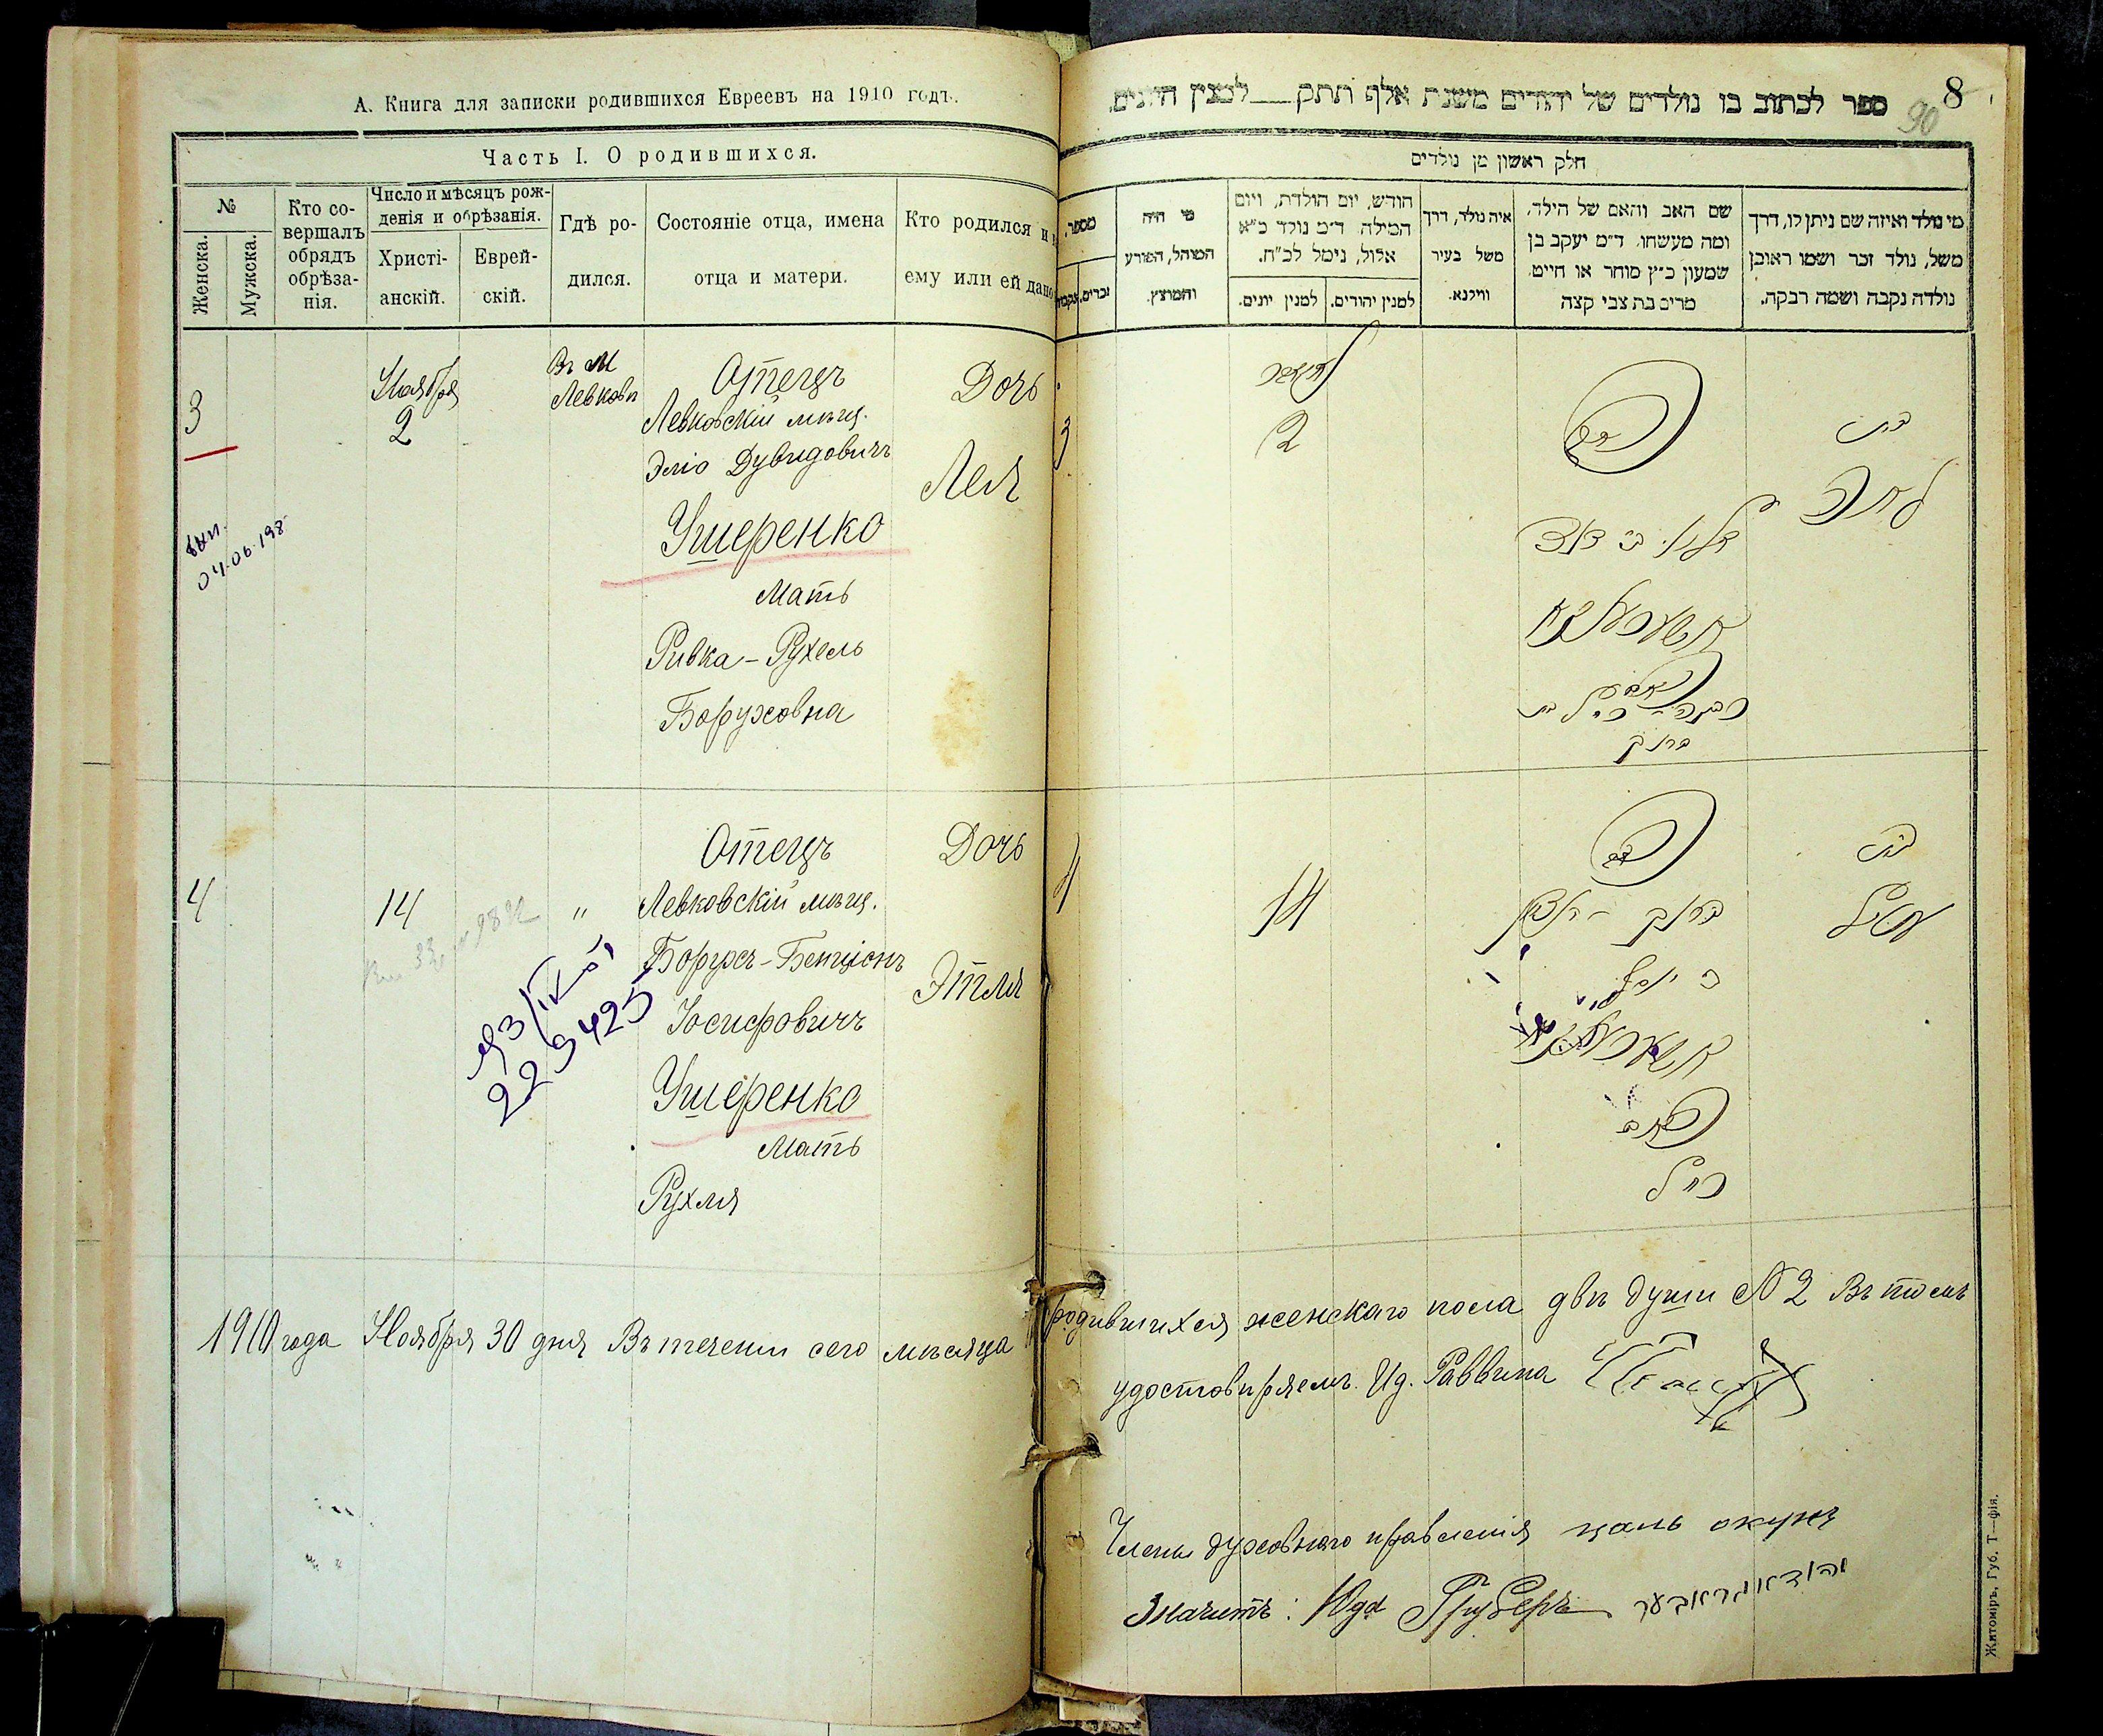 А. Книга для записки родившихся Евреевъ на 1910 годъ.
Часть I. О родившихся.
№
Женска.
Мужска.
Кто со-
вершалъ
обрядъ
обрѣза-
нія.
Число и мѣсяцъ рож-
денія и обрѣзанія.
Христі-
анскій.
Еврей-
скій.
Гдѣ ро-
дился.
Состояніе отца, имена
отца и матери.
Кто родился и
ему или ей дано
3
Ноября
2
Въ М
Левковѣ
Отецъ
Левковскій мѣщ.
Эліо Дувидовичъ
Ушеренко
Мать
Ривка-Рухель
Боруховна
Дочь
Лея
04.06.198
4
14
"
Отецъ
Левковскій мѣщ.
Борухъ-Бенціонъ
Іосифовичъ
Ушеренко
Мать
Рухля
Дочь
Этля
229425
1910 года Ноября 30 дня Въ теченіи сего мѣсяца
8
90
ספר לכתוב בו נולדים של יהודים משנת אלף תתק___למנין היונים
חלק ראשון מן נולדים
מספר,
זכרים,
מי היה
המוהל, הפורע
והמוצץ.
חודש, יום הולדת, ויום
המילה ד״מ נולד כ״א
אלול, נימל לכ״ח.
למנין יונים.
למנין יהודים.
איה נולד, דרך
משל בעיר
ווילנא.
שם האב והאם של הילד,
ומה מעשהו, ד״מ יעקב בן
שמעון כ״ץ סוחר או חייט,
מרים בת צבי קצה
מי נולד ואיזה שם ניתן לו, דרך
משל, נולד זכר ושמו ראובן
נולדה נקבה ושמה רבקה.
3
2
בת
לאה
רבקה-רחל בת
ברוך
4
14
בת
עטל
רחל
родившихся женскаго пола двѣ души № 2 Въ томъ
удостовѣряемъ. Ид. Раввина
Члены духовнаго правленія
значитъ: Юда Груберъ יהודא גראבער
Житоміръ, Губ. Т—фія.